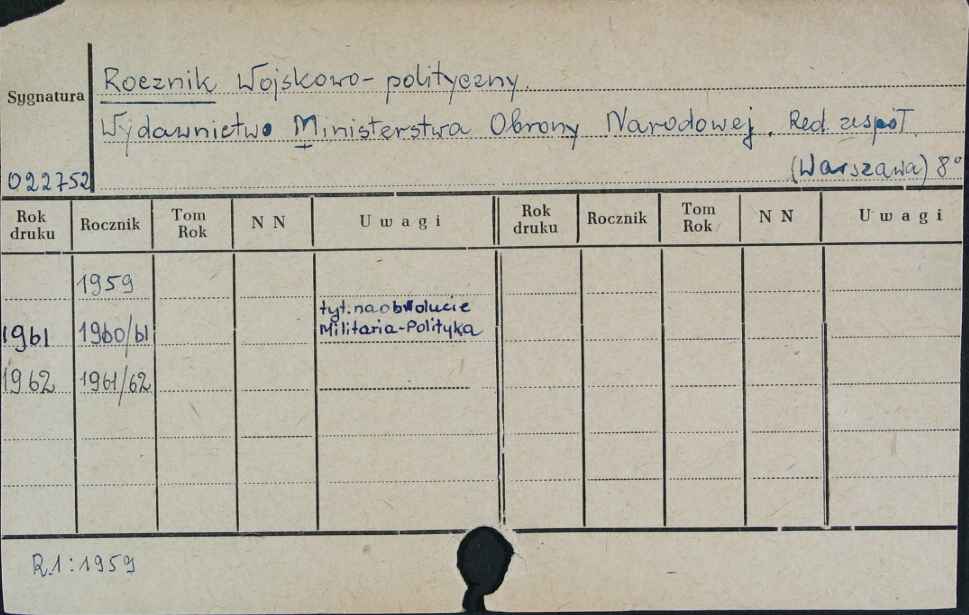 Rocznik Wojskowo-polityczny.
Sygnatura
Wydawnictwo Ministerstwa Obrony Narodowej. Red. zespół.
022752 (Warszawa) 8°
Rok druku Rocznik Tom Rok NN Uwagi Rok druku Rocznik Tom Rok NN Uwagi
1959
tyt. na obwolucie
1961 1960/61 Militaria-Polityka
1962 1961/62
R.1:1959